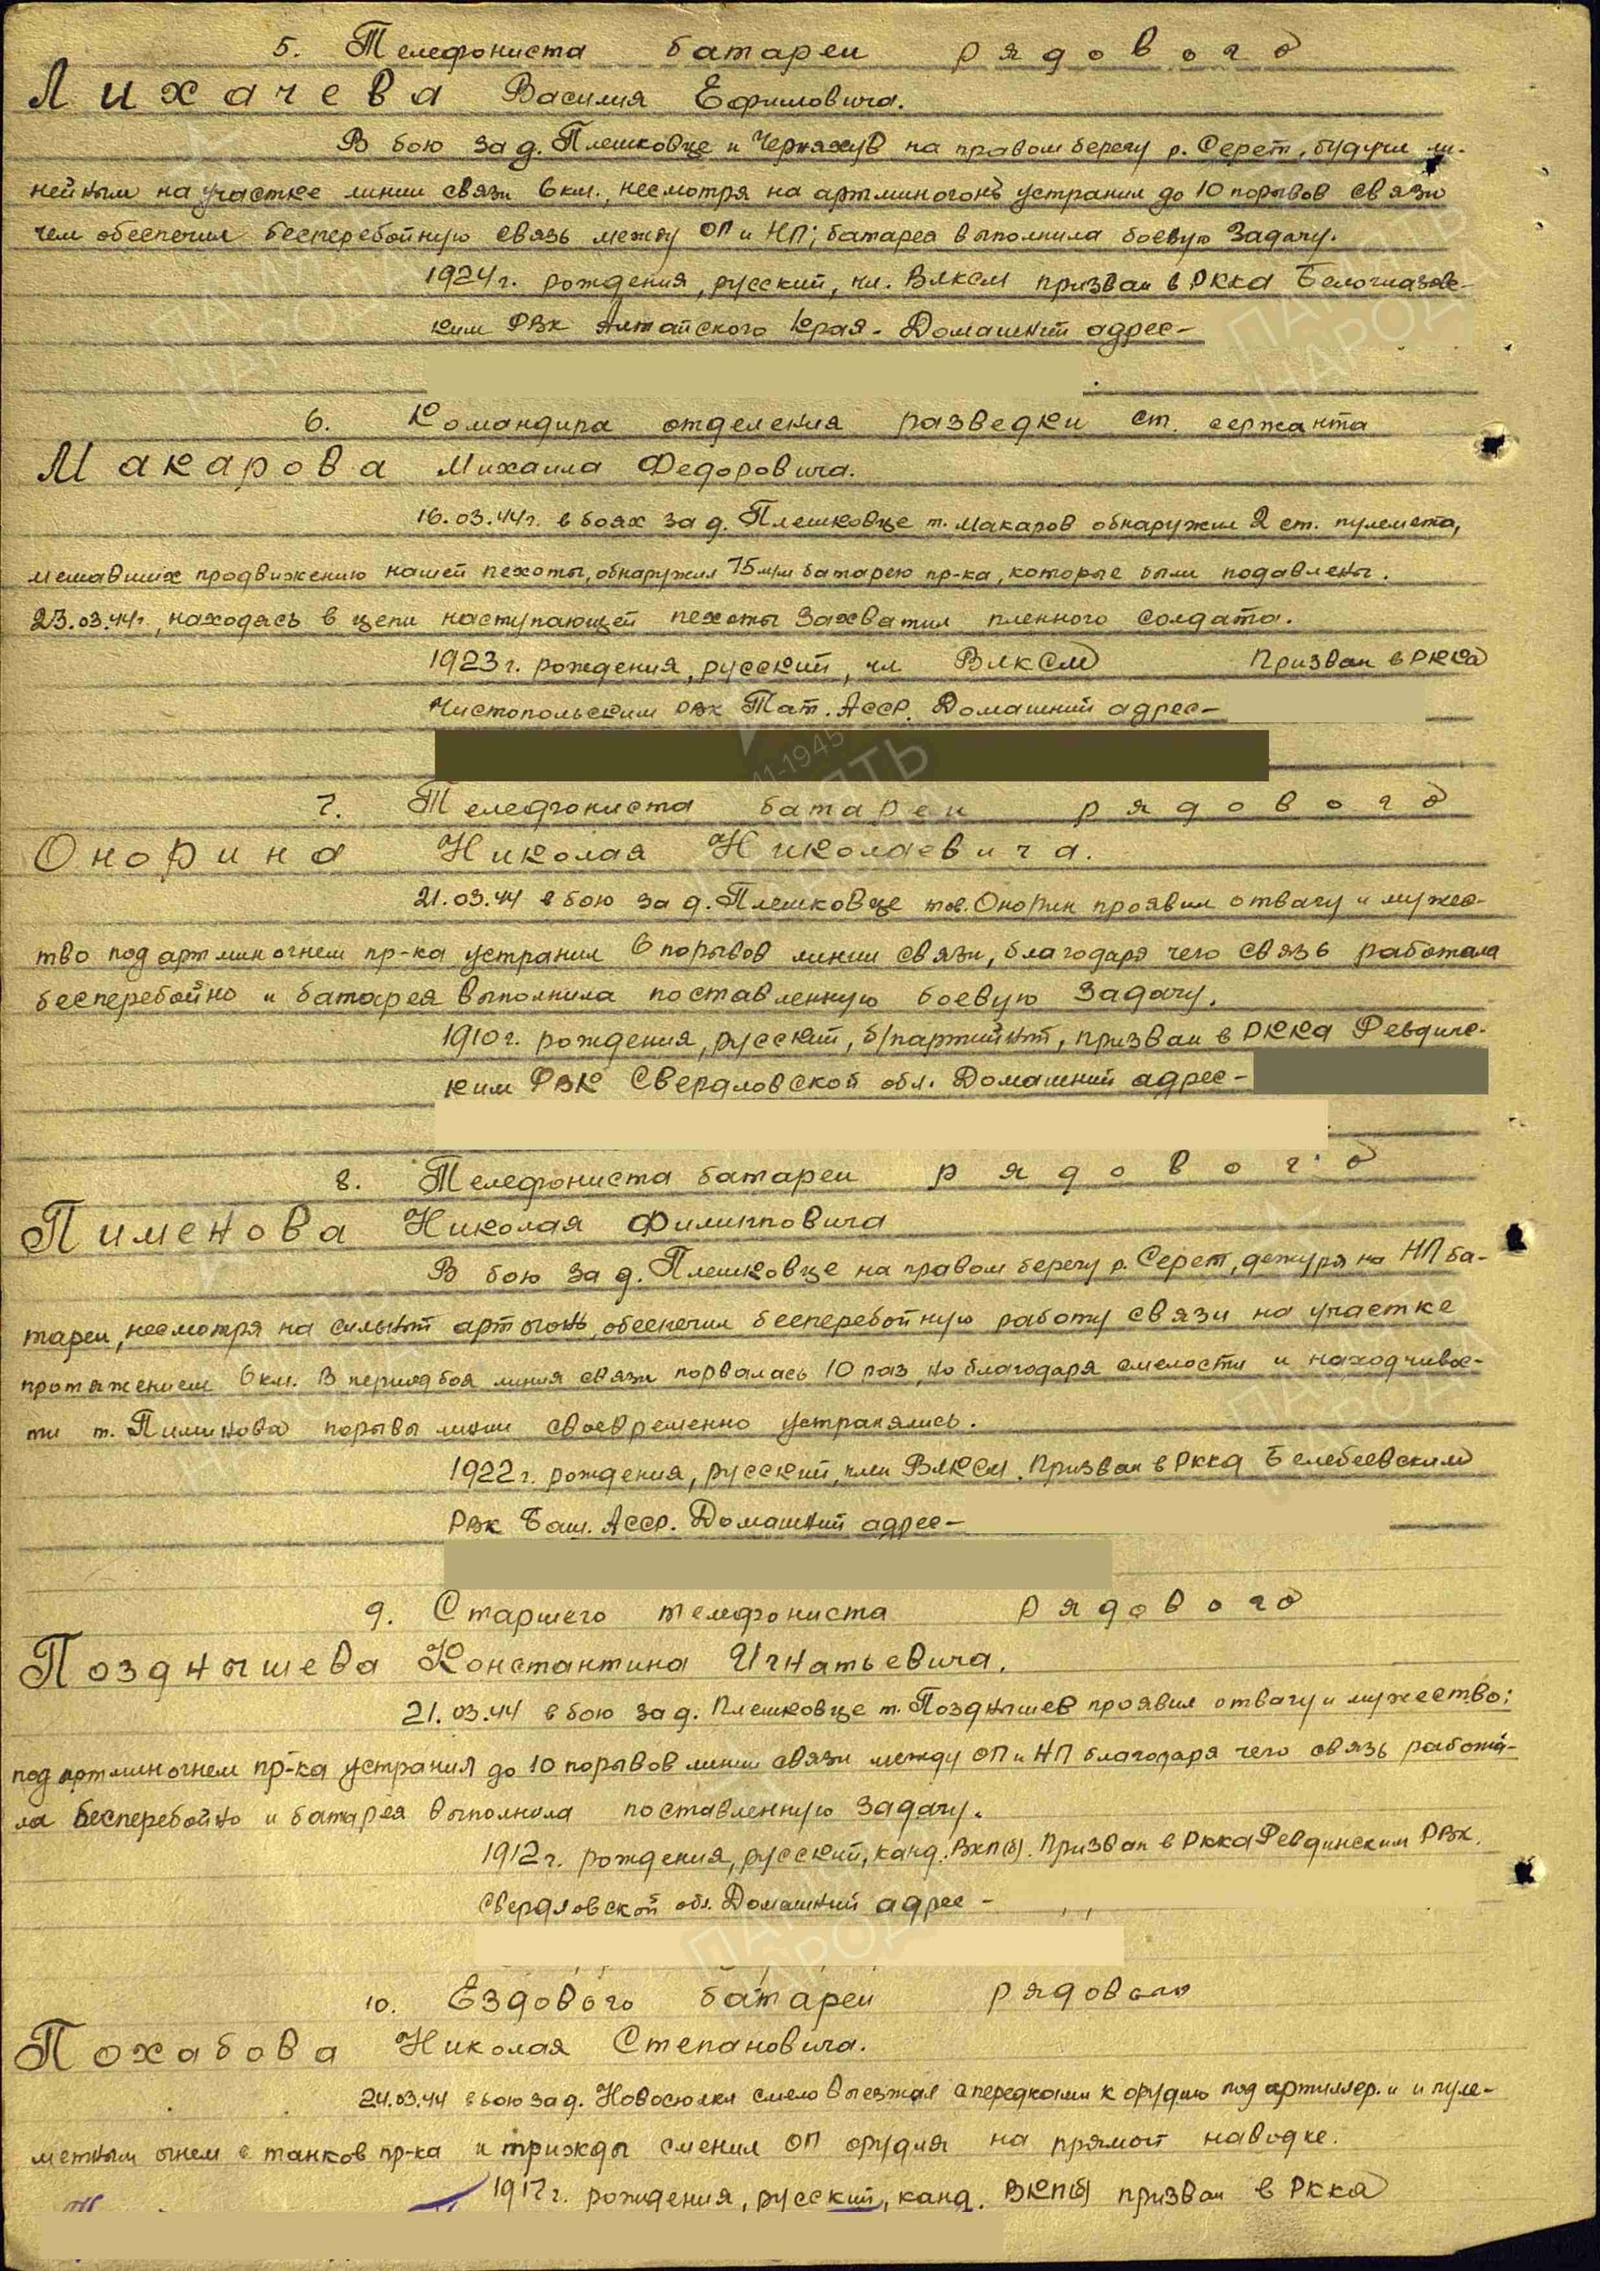 5. Телефониста батареи рядового
Лихачева Василия Ефимовича.
В бою за д. Плешковце и Черняхув на правом берегу р. Серет, будучи ли-
нейным на участке линии связи 6 км., несмотря на артминогонь устранил до 10 порывов связи
чем обеспечил бесперебойную связь между ОП и НП; батарея выполнила боевую задачу.
1924 г. рождения, русский, чл. ВЛКСМ призван в РККА Белоглазовс-
ким РВК Алтайского Края. Домашний адрес-
6. Командира отделения разведки ст. сержанта
Макарова Михаила Федоровича.
16.03.44 г. в боях за д. Плешковце т. Макаров обнаружил 2 ст. пулемета,
мешавших продвижению нашей пехоты, обнаружил 75 м/м батарею пр-ка, которые были подавлены.
23.03.44 г., находясь в цепи наступающей пехоты захватил пленного солдата.
1923 г. рождения, русский, чл ВЛКСМ Призван в РККА
Чистопольским РВК Тат. АССР. Домашний адрес-
7. Телефониста батареи рядового
Онорина Николая Николаевича.
21.03.44 в бою за д. Плешковце тов. Онорин проявил отвагу и мужес-
тво под артминогнем пр-ка устранил 6 порывов линии связи, благодаря чего связь работала
бесперебойно и батарея выполнила поставленную боевую задачу.
1910 г. рождения, русский, б/партийный, призван в РККА Ревдинс-
ким РВК Свердловской обл. Домашний адрес-
8. Телефониста батареи рядового
Пименова Николая Филипповича
В бою за д. Плешковце на правом берегу р. Серет, дежуря на НП ба-
тареи, несмотря на сильный артогонь, обеспечил бесперебойную работу связи на участке
протяжением 6 км. В период боя линия связи порвалась 10 раз, но благодаря смелости и находчивос-
ти т. Пиминова порывы линии своевременно устранялись.
1922 г. рождения, русский, член ВЛКСМ. Призван в РККА Белебеевским
РВК Баш. АССР. Домашний адрес-
9. Старшего телефониста рядового
Позднышева Константина Игнатьевича.
21.03.44 в бою за д. Плешковце т. Позднышев проявил отвагу и мужество;
под артминогнем пр-ка устранил до 10 порывов линии связи между ОП и НП благодаря чего связь работа-
ла бесперебойно и батарея выполнила поставленную задачу.
1912 г. рождения, русский, канд. ВКП(б). Призван в РККА Ревдинским РВК.
Свердловской обл. Домашний адрес-
10. Ездового батареи рядового
Похабова Николая Степановича.
24.03.44 в бою за д. Новосюлки смело выезжал с передками к орудию под артиллер. и и пуле-
метным огнем с танков пр-ка и трижды сменил ОП орудия на прямой наводке.
1917 г. рождения, русский, канд. ВКП(б) призван в РККА
ПАМЯТЬ
НАРОДА